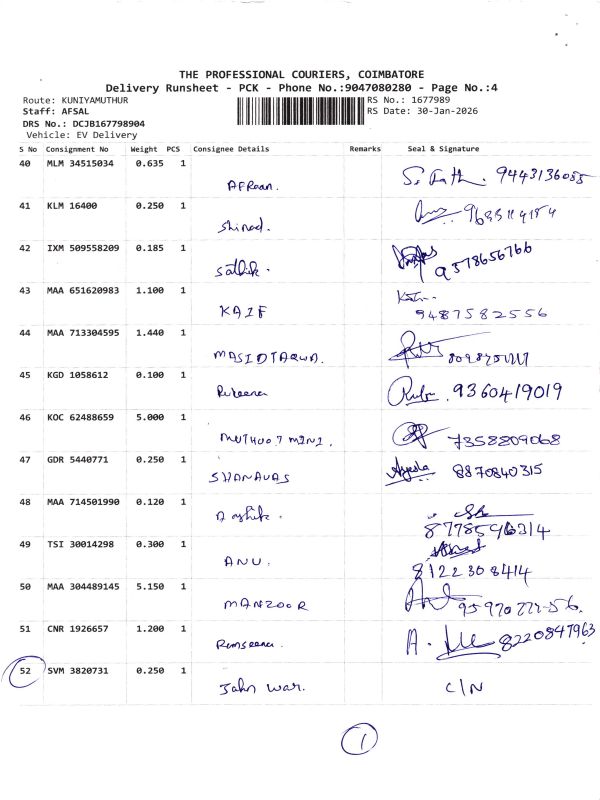 THE PROFESSIONAL COURIERS, COIMBATORE
Delivery Runsheet - PCK - Phone No.:9047080280 - Page No.:4
Route: KUNIYAMUTHUR RS No.: 1677989
Staff: AFSAL RS Date: 30-Jan-2026
DRS No.: DCJB167798904
Vehicle: EV Delivery
S No Consignment No Weight PCS Consignee Details Remarks Seal & Signature
40 MLM 34515034 0.635 1
AFRaan. 9443136085
41 KLM 16400 0.250 1
Shinad.
42 IXM 509558209 0.185 1
Sathik. 9578656766
43 MAA 651620983 1.100 1
KAIF 9487582556
44 MAA 713304595 1.440 1
MASJDTAQWA.
45 KGD 1058612 0.100 1
Rubeena 9360419019
46 KOC 62488659 5.000 1
MUTHOOT MINI. 7358809068
47 GDR 5440771 0.250 1
SHANAVAS Ayesha 8870840315
48 MAA 714501990 0.120 1
Aashik.
49 TSI 30014298 0.300 1
ANU. 8122308414
50 MAA 304489145 5.150 1
MANZOOR
51 CNR 1926657 1.200 1
Ramseena 8220847963
52 SVM 3820731 0.250 1
Jahn war. C/N
1